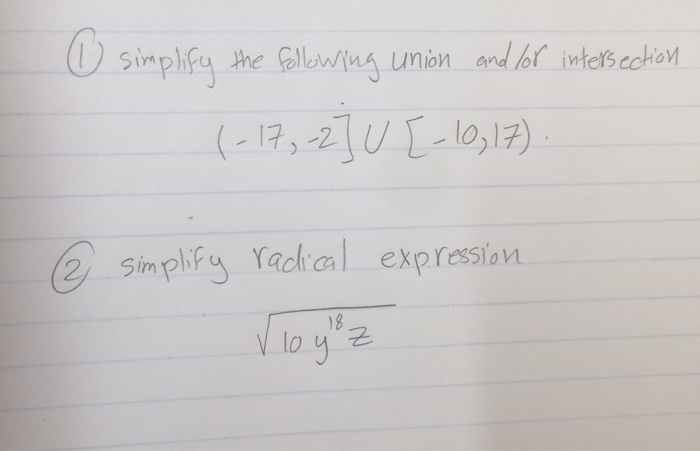 ① simplify the following union and/or intersection
(-17, -2] U [-10, 17).
② simplify radical expression
√10 y¹⁸ z